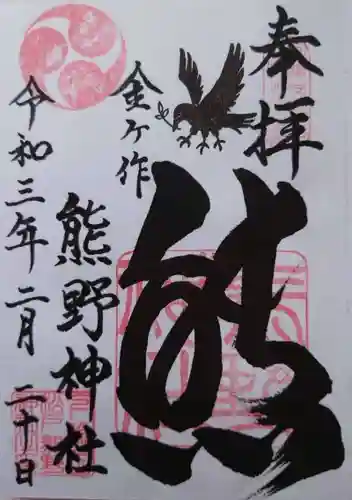 奉拝
熊
金ヶ作
熊野神社
令和三年二月二十日